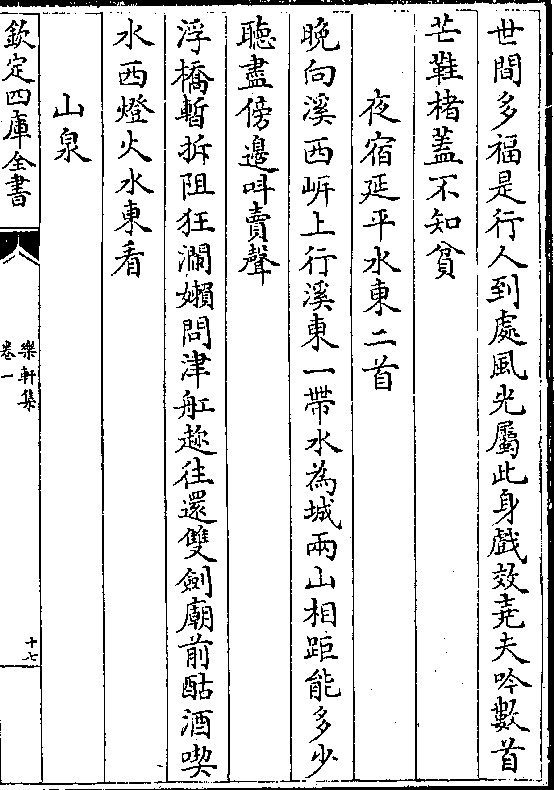 世間多福是行人到處風光屬此身戲效堯夫吟數首
芒鞵楮蓋不知貧
夜宿延平水東二首
晚向溪西岍上行溪東一帶水為城兩山相距能多少
聽盡傍邊呌賣聲
浮橋暫拆阻狂瀾嬾問津舡趂往還雙劍廟前酤酒喫
水西燈火水東看
山泉
欽定四庫全書
樂軒集
卷一
十七